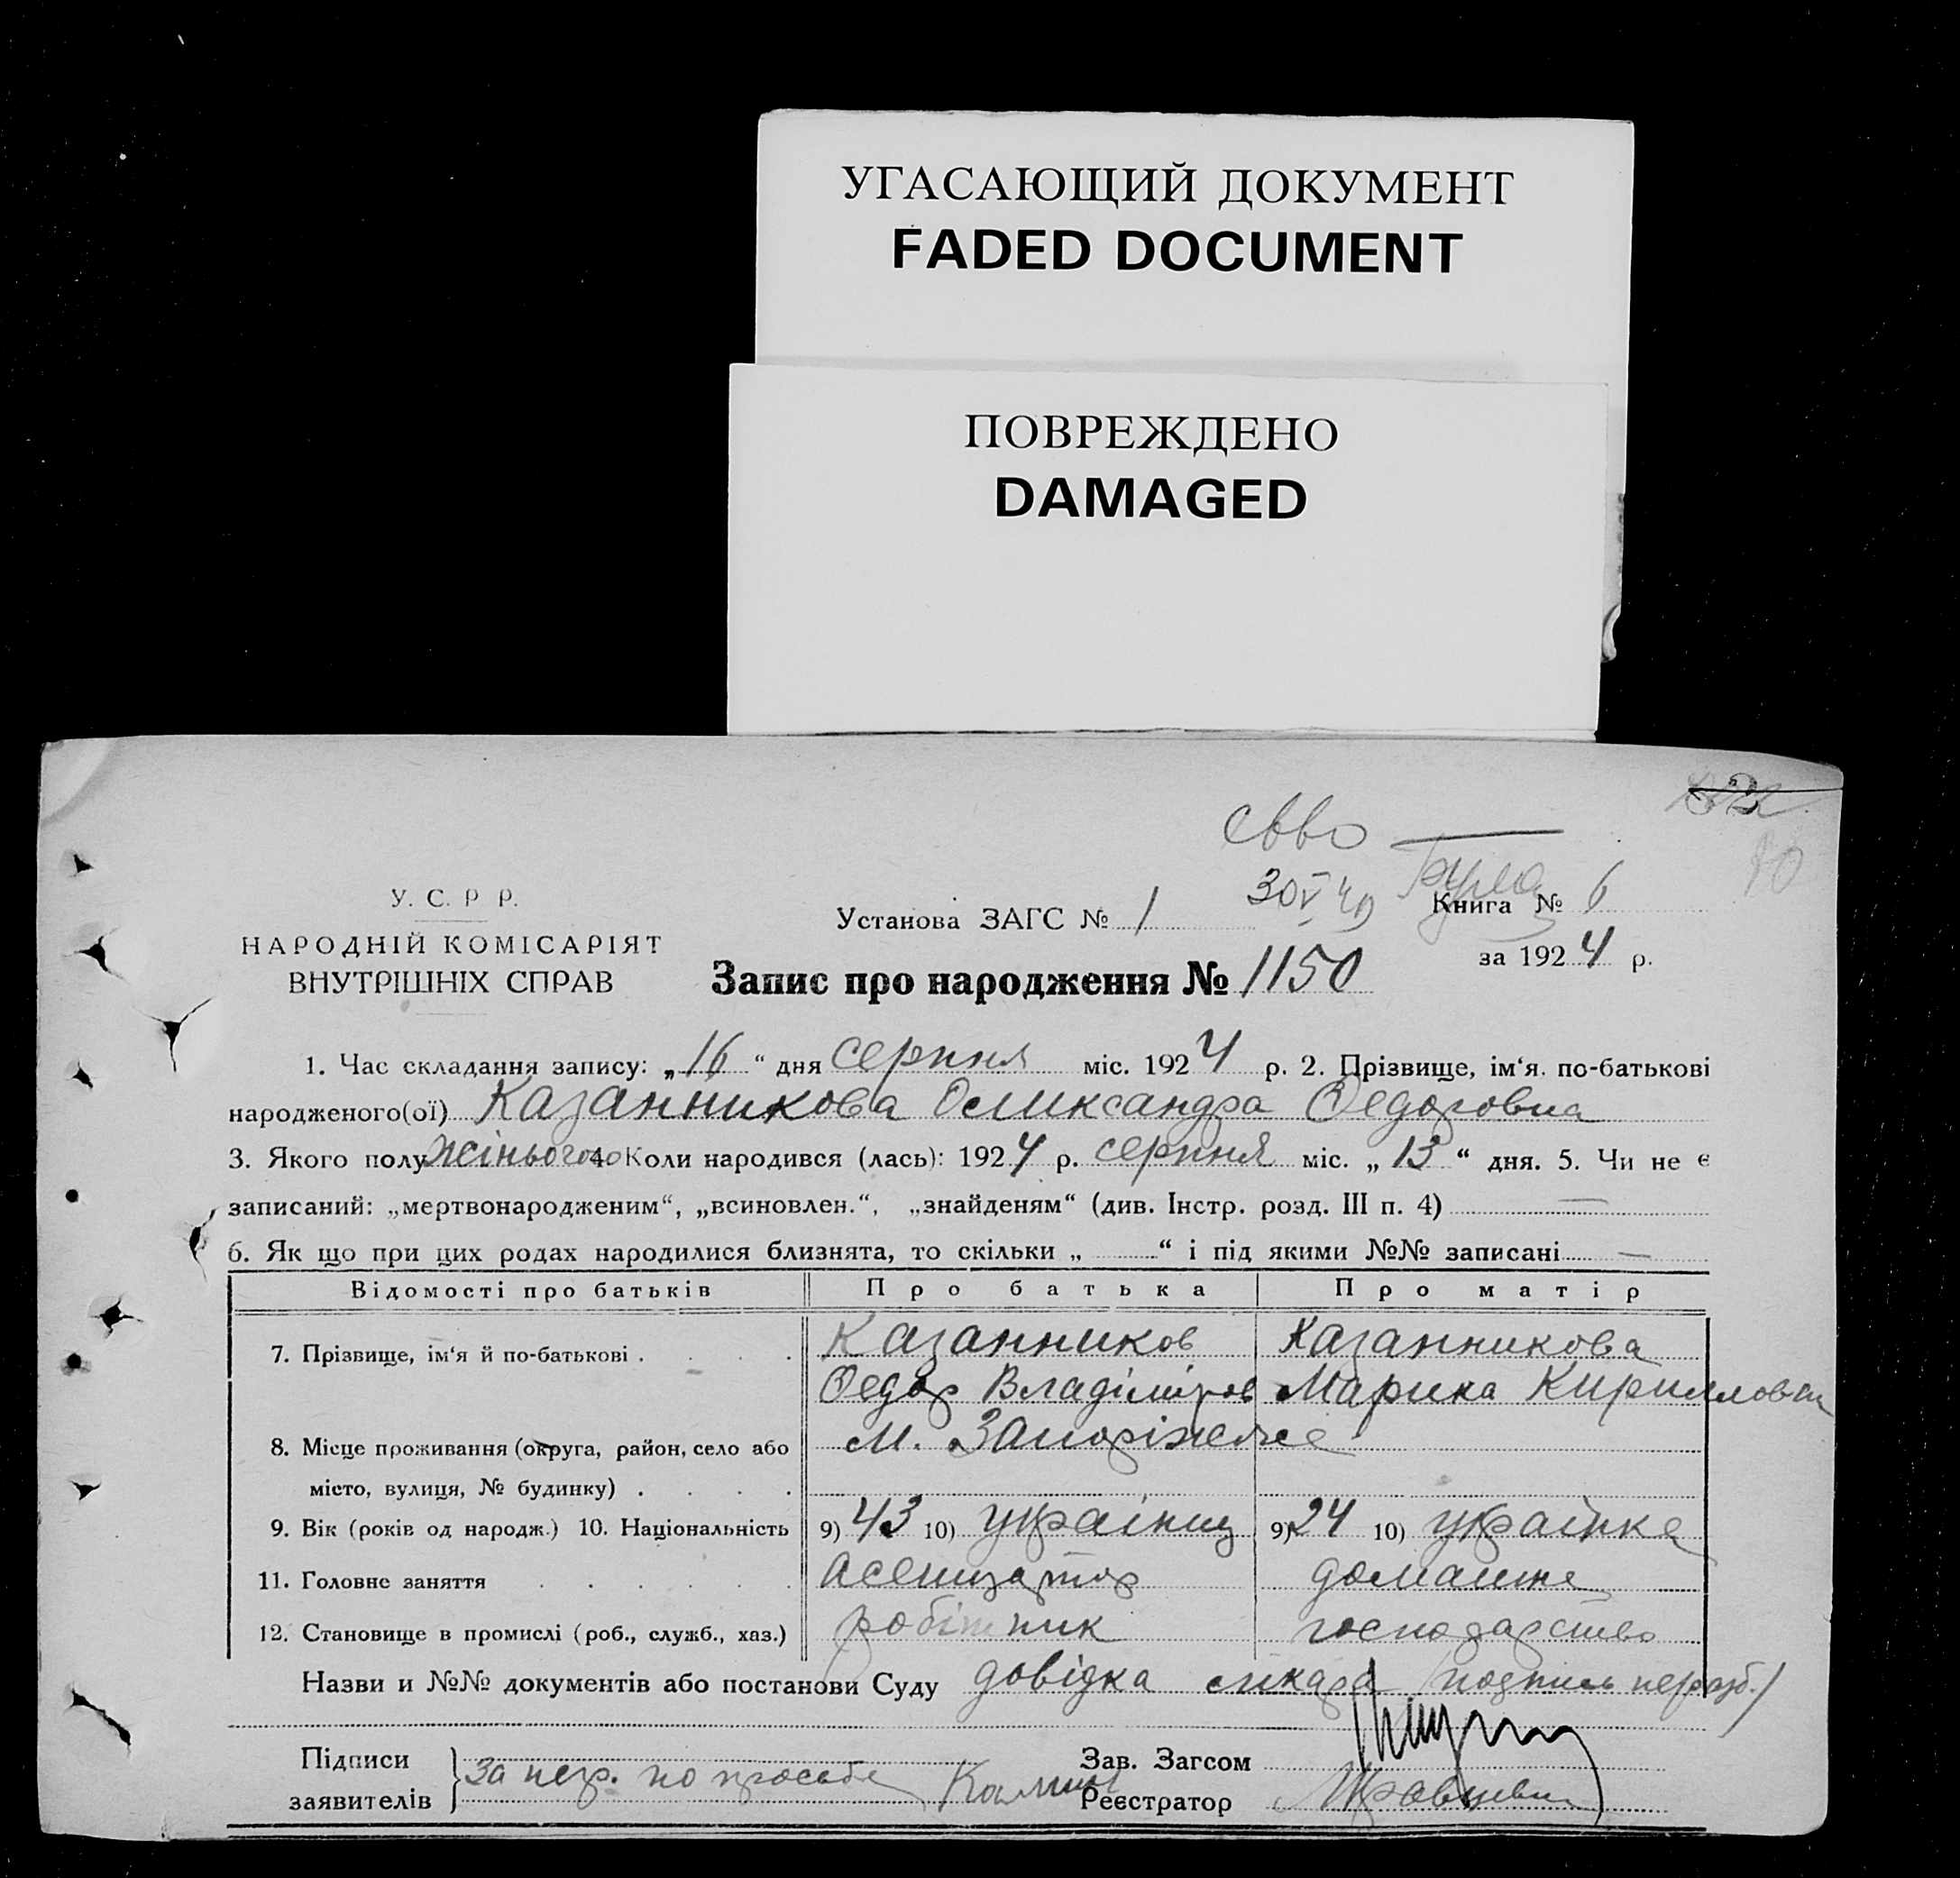 УГАСАЮЩИЙ ДОКУМЕНТ
FADED DOCUMENT
ПОВРЕЖДЕНО
DAMAGED
У. С. Р Р.
НАРОДНІЙ КОМІСАРІЯТ
ВНУТРІШНІХ СПРАВ
Установа ЗАГС № 1
Книга № 6
за 1924 р.
Запис про народження № 1150
1. Час складання запису: „16“ дня серпня міс. 1924 р. 2. Прізвище, ім‘я. по-батькові
народженого(ої) Казанникова Оликсандра Федоровна
3. Якого полу жіньогого 4. Коли народився (лась): 1924 р. серпня міс. „13“ дня. 5. Чи не є
записаний: „мертвонародженим“, „всиновлен.“, „знайденям“ (див. Інстр. розд. III п. 4) —
6. Як що при цих родах народилися близнята, то скільки „ “ і під якими №№ записані —
Відомості про батьків Про батька Про матір
7. Прізвище, ім‘я й по-батькові . Казанников Казанникова
Федор Владіміров Марина Кирилловна
8. Місце проживання (округа, район, село або м. Запоріжже
місто, вулиця, № будинку) .
9. Вік (років од народж.) 10. Національність 9) 43 10) украінец 9) 24 10) украінка
11. Головне заняття асенизатор домашне
12. Становище в промислі (роб., служб., хаз.) робітник господарство
Назви и №№ документів або постанови Суду довідка лікара /подпись неразб./
Підписи за негр. по просьбе Зав. Загсом
заявителів Реєстратор